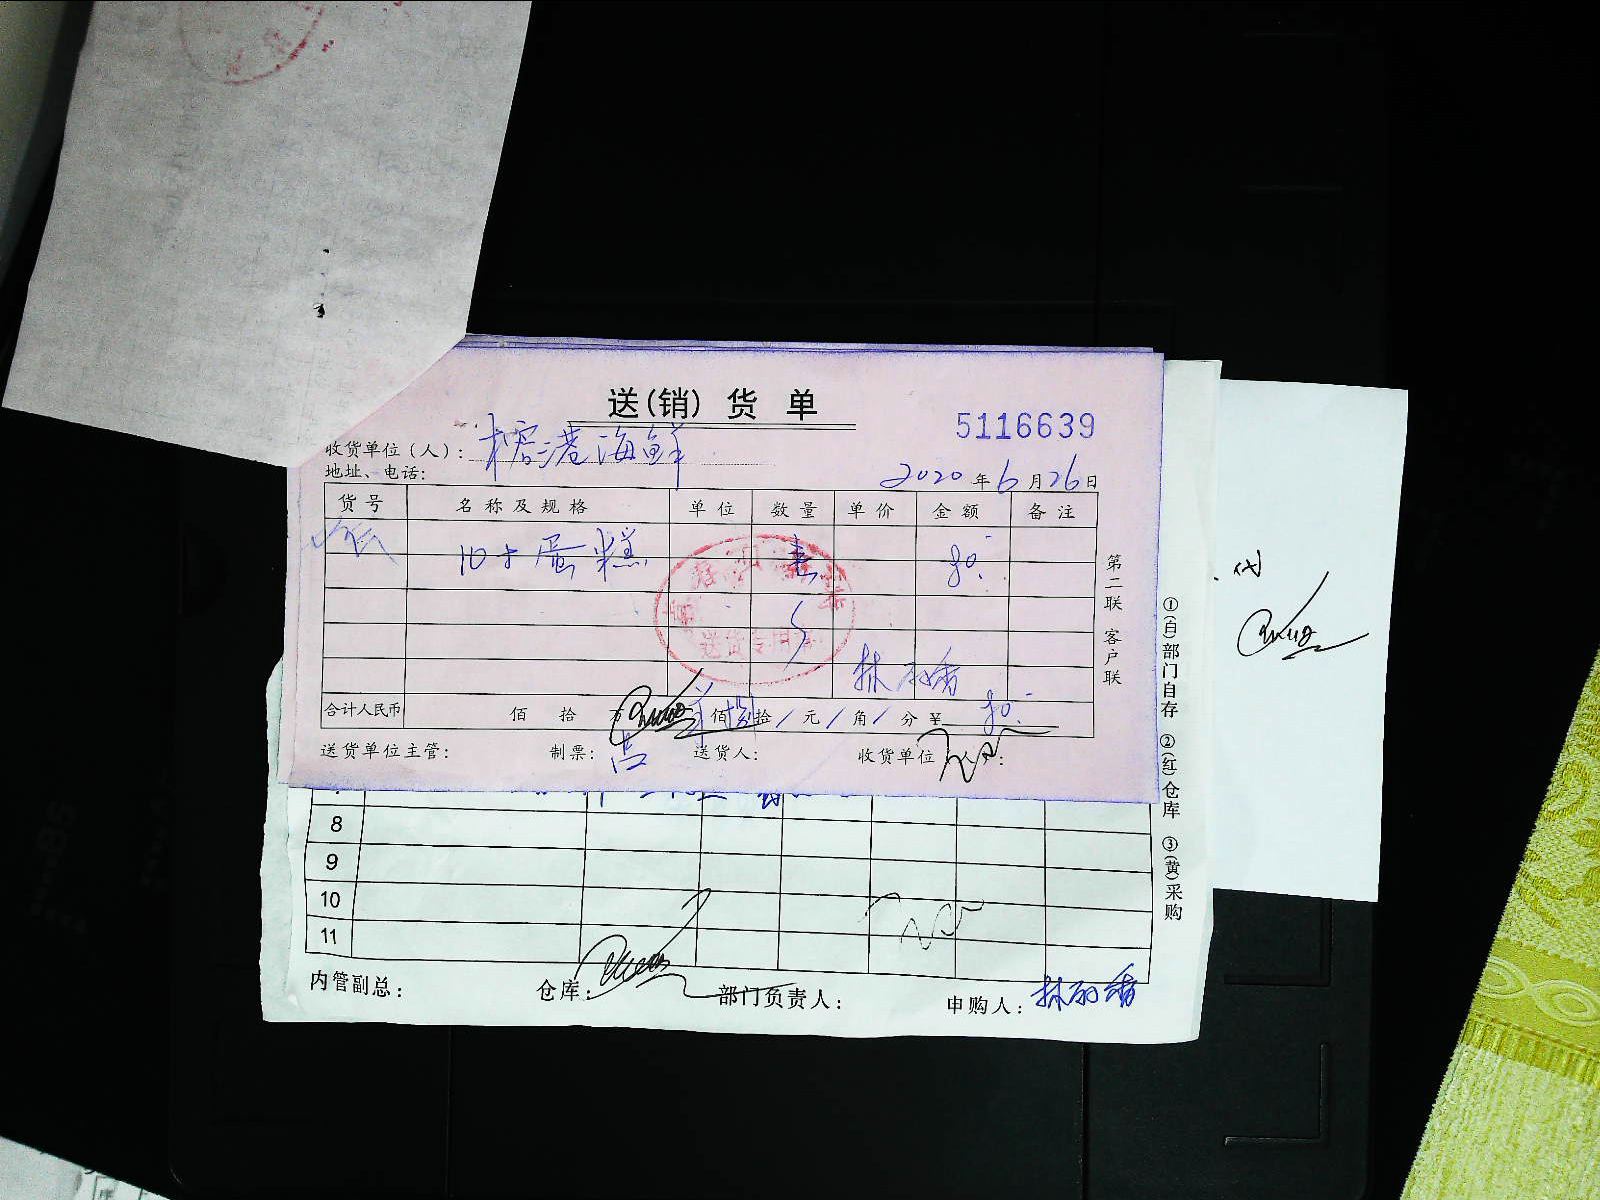 送(销)货单
5116639
收货单位(人): 榕港海鲜
地址、电话:
2020年6月26日
货号 名称及规格 单位 数量 单价 金额 备注
10寸蛋糕 80.
送货专用章
林丽香
合计人民币 佰 拾 万 佰捌拾/元/角/分¥ 80.
送货单位主管: 制票: 送货人: 收货单位
第二联 客户联
8
9
10
11
内管副总: 仓库: 部门负责人: 申购人: 林丽香
①(白)部门自存 ②(红)仓库 ③(黄)采购
代